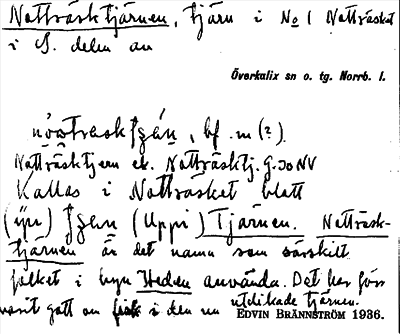 Nattträsktjärnen, tjärn i No 1 Nattträsket
i S. delen av
Överkalix sn o. tg. Norrb. l.
bf. m (?).
Nattträsktjern ek. Nattträsktj. G.30NV
Kallas i Nattträsket blott
(Uppi) Tjärnen. Nattträsk-
tjärnen är det namn som särskilt
folket i byn Heden använda. Det har förr
varit gott om fisk i den nu utdikade tjärnen.
EDVIN BRÄNNSTRÖM 1936.